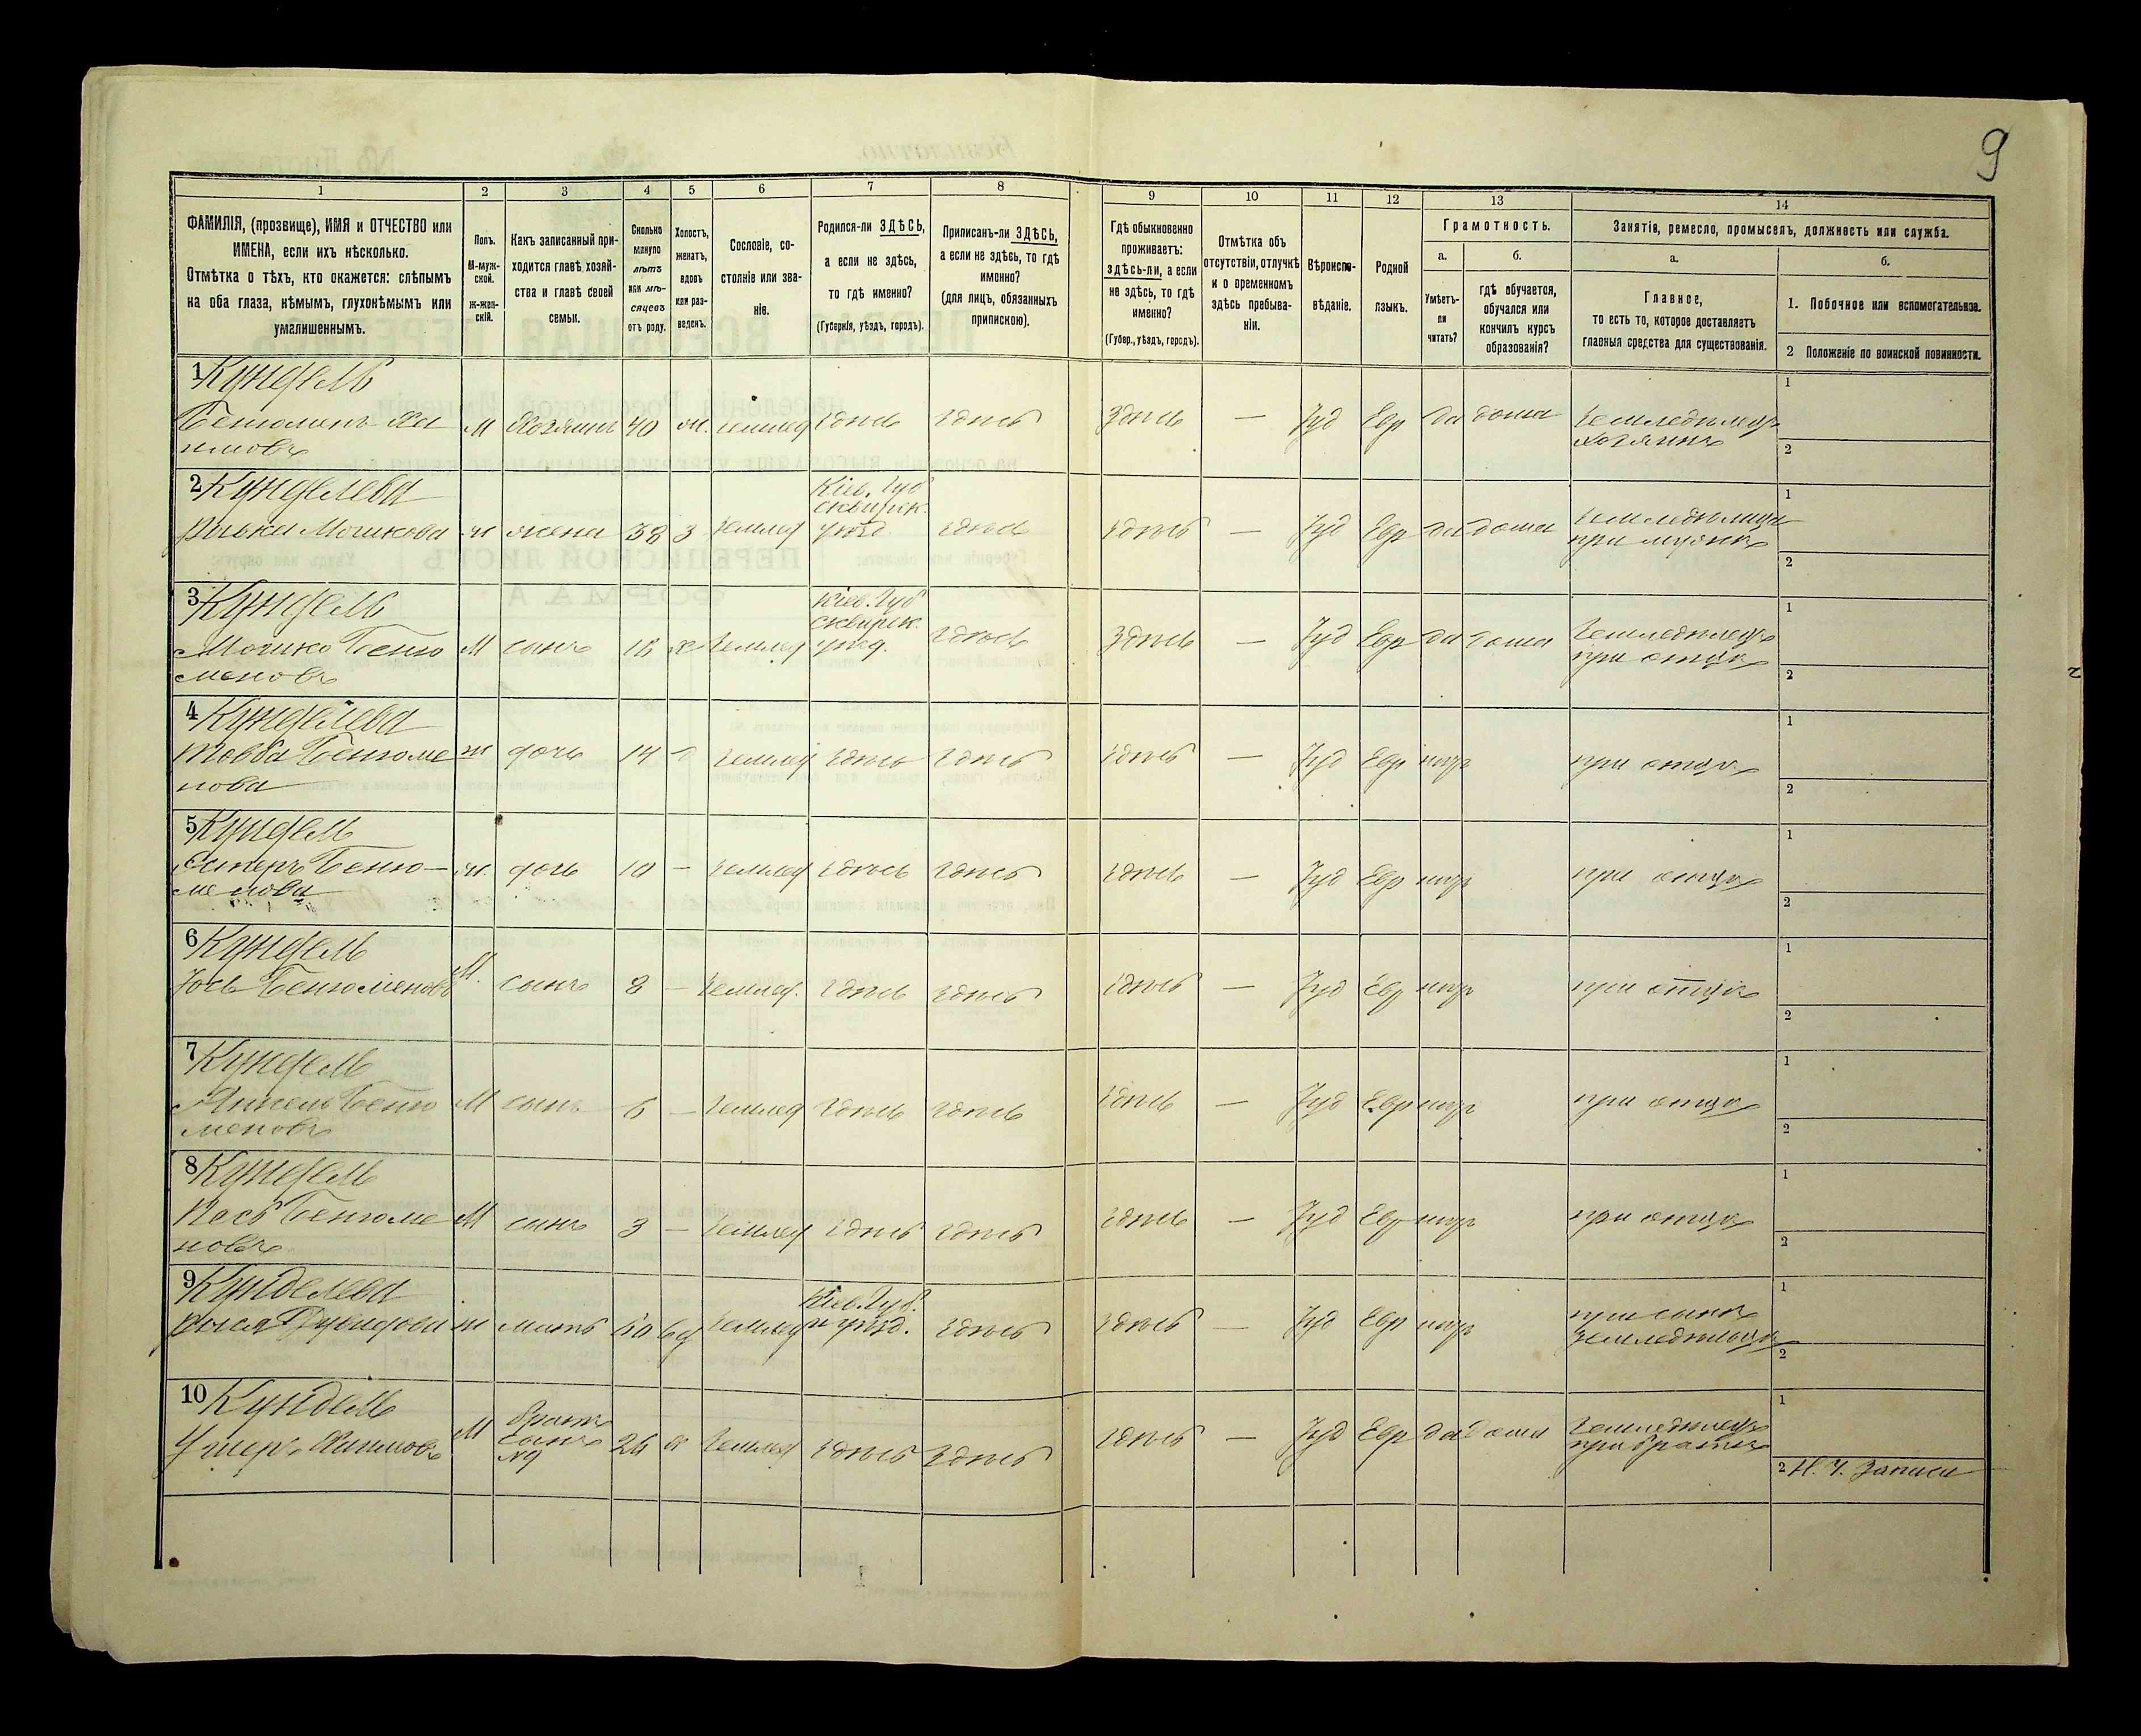 9
1 2 3 4 5 6 7 8 9 10 11 12 13 14
ФАМИЛІЯ, (прозвище), ИМЯ и ОТЧЕСТВО или
ИМЕНА, если ихъ нѣсколько.
Отмѣтка о тѣхъ, кто окажется: слѣпымъ
на оба глаза, нѣмымъ, глухонѣмымъ или
умалишеннымъ.
Полъ.
М-муж-
ской.
ж-жен-
скій.
Какъ записанный при-
ходится главѣ хозяй-
ства и главѣ своей
семьи.
Сколько
минуло
лѣтъ
или мѣ-
сяцевъ
отъ роду.
Холостъ,
женатъ,
вдовъ
или раз-
веденъ.
Сословіе, со-
стояніе или зва-
ніе.
Родился-ли ЗДѢСЬ,
а если не здѣсь,
то гдѣ именно?
(Губернія, уѣздъ, городъ).
Приписанъ-ли ЗДѢСЬ,
а если не здѣсь, то гдѣ
именно?
(для лицъ, обязанныхъ
припискою).
Гдѣ обыкновенно
проживаетъ:
здѣсь-ли, а если
не здѣсь, то гдѣ
именно?
(Губер., уѣздъ, городъ).
Отмѣтка объ
отсутствіи, отлучкѣ
и о временномъ
здѣсь пребыва-
ніи.
Вѣроиспо-
вѣданіе.
Родной
языкъ.
Грамотность.
а.
Умѣетъ-
ли
читать?
б.
гдѣ обучается,
обучался или
кончилъ курсъ
образованія?
Занятія, ремесло, промыселъ, должность или служба.
а.
Главное,
то есть то, которое доставляетъ
главныя средства для существованія.
б.
1. Побочное или вспомогательное.
2 Положеніе по воинской повинности.
1 Кундель
М Хозяинъ 40 земледѣ здѣсь здѣсь здѣсь — Іуд Евр да дома земледѣлецъ
хозяинъ
1
2
2 Кунделева
Мошкова ж жена 38 з землед
Кіев. Губ
сквирск.
уѣзд.
здѣсь здѣсь — Іуд Евр да дома
при мужѣ
1
2
3 Кундель
Мошко Беню
меновъ
М сынъ 18 х землед
Кіев. Губ
сквирск.
уѣзд.
здѣсь здѣсь — Іуд Евр да дома земледѣлецъ
при отцѣ
1
2
4 Кунделева
Товба Бенюме
нова
ж дочь 14 землед здѣсь здѣсь здѣсь — Іуд Евр нѣтъ при отцѣ
1
2
5 Кундель
Эстеръ Беню-
менова
ж. дочь 10 — землед здѣсь здѣсь здѣсь — Іуд Евр нѣтъ при отцѣ
1
2
6 Кундель
Іось Бенюменовъ
М. сынъ 8 — землед. здѣсь здѣсь здѣсь — Іуд Евр нѣтъ при отцѣ
1
2
7 Кундель
Беню
меновъ
М сынъ — землед здѣсь здѣсь здѣсь — Іуд Евр нѣтъ при отцѣ
1
2
8 Кундель
Бенюме
новъ
М сынъ 3 — землед здѣсь здѣсь здѣсь — Іуд Евр нѣтъ при отцѣ
1
2
9 Кунделева
ж мать землед
Кіев. Губ.
уѣзд.
здѣсь здѣсь — Іуд Евр нѣтъ при сынѣ
1
2
10 Кундель
Ушеръ Хаимовъ
М братъ
сынъ
№9
землед здѣсь здѣсь здѣсь — Іуд Евр да дома земледѣлецъ
при братѣ
1
2 Н. Ч. Запаса